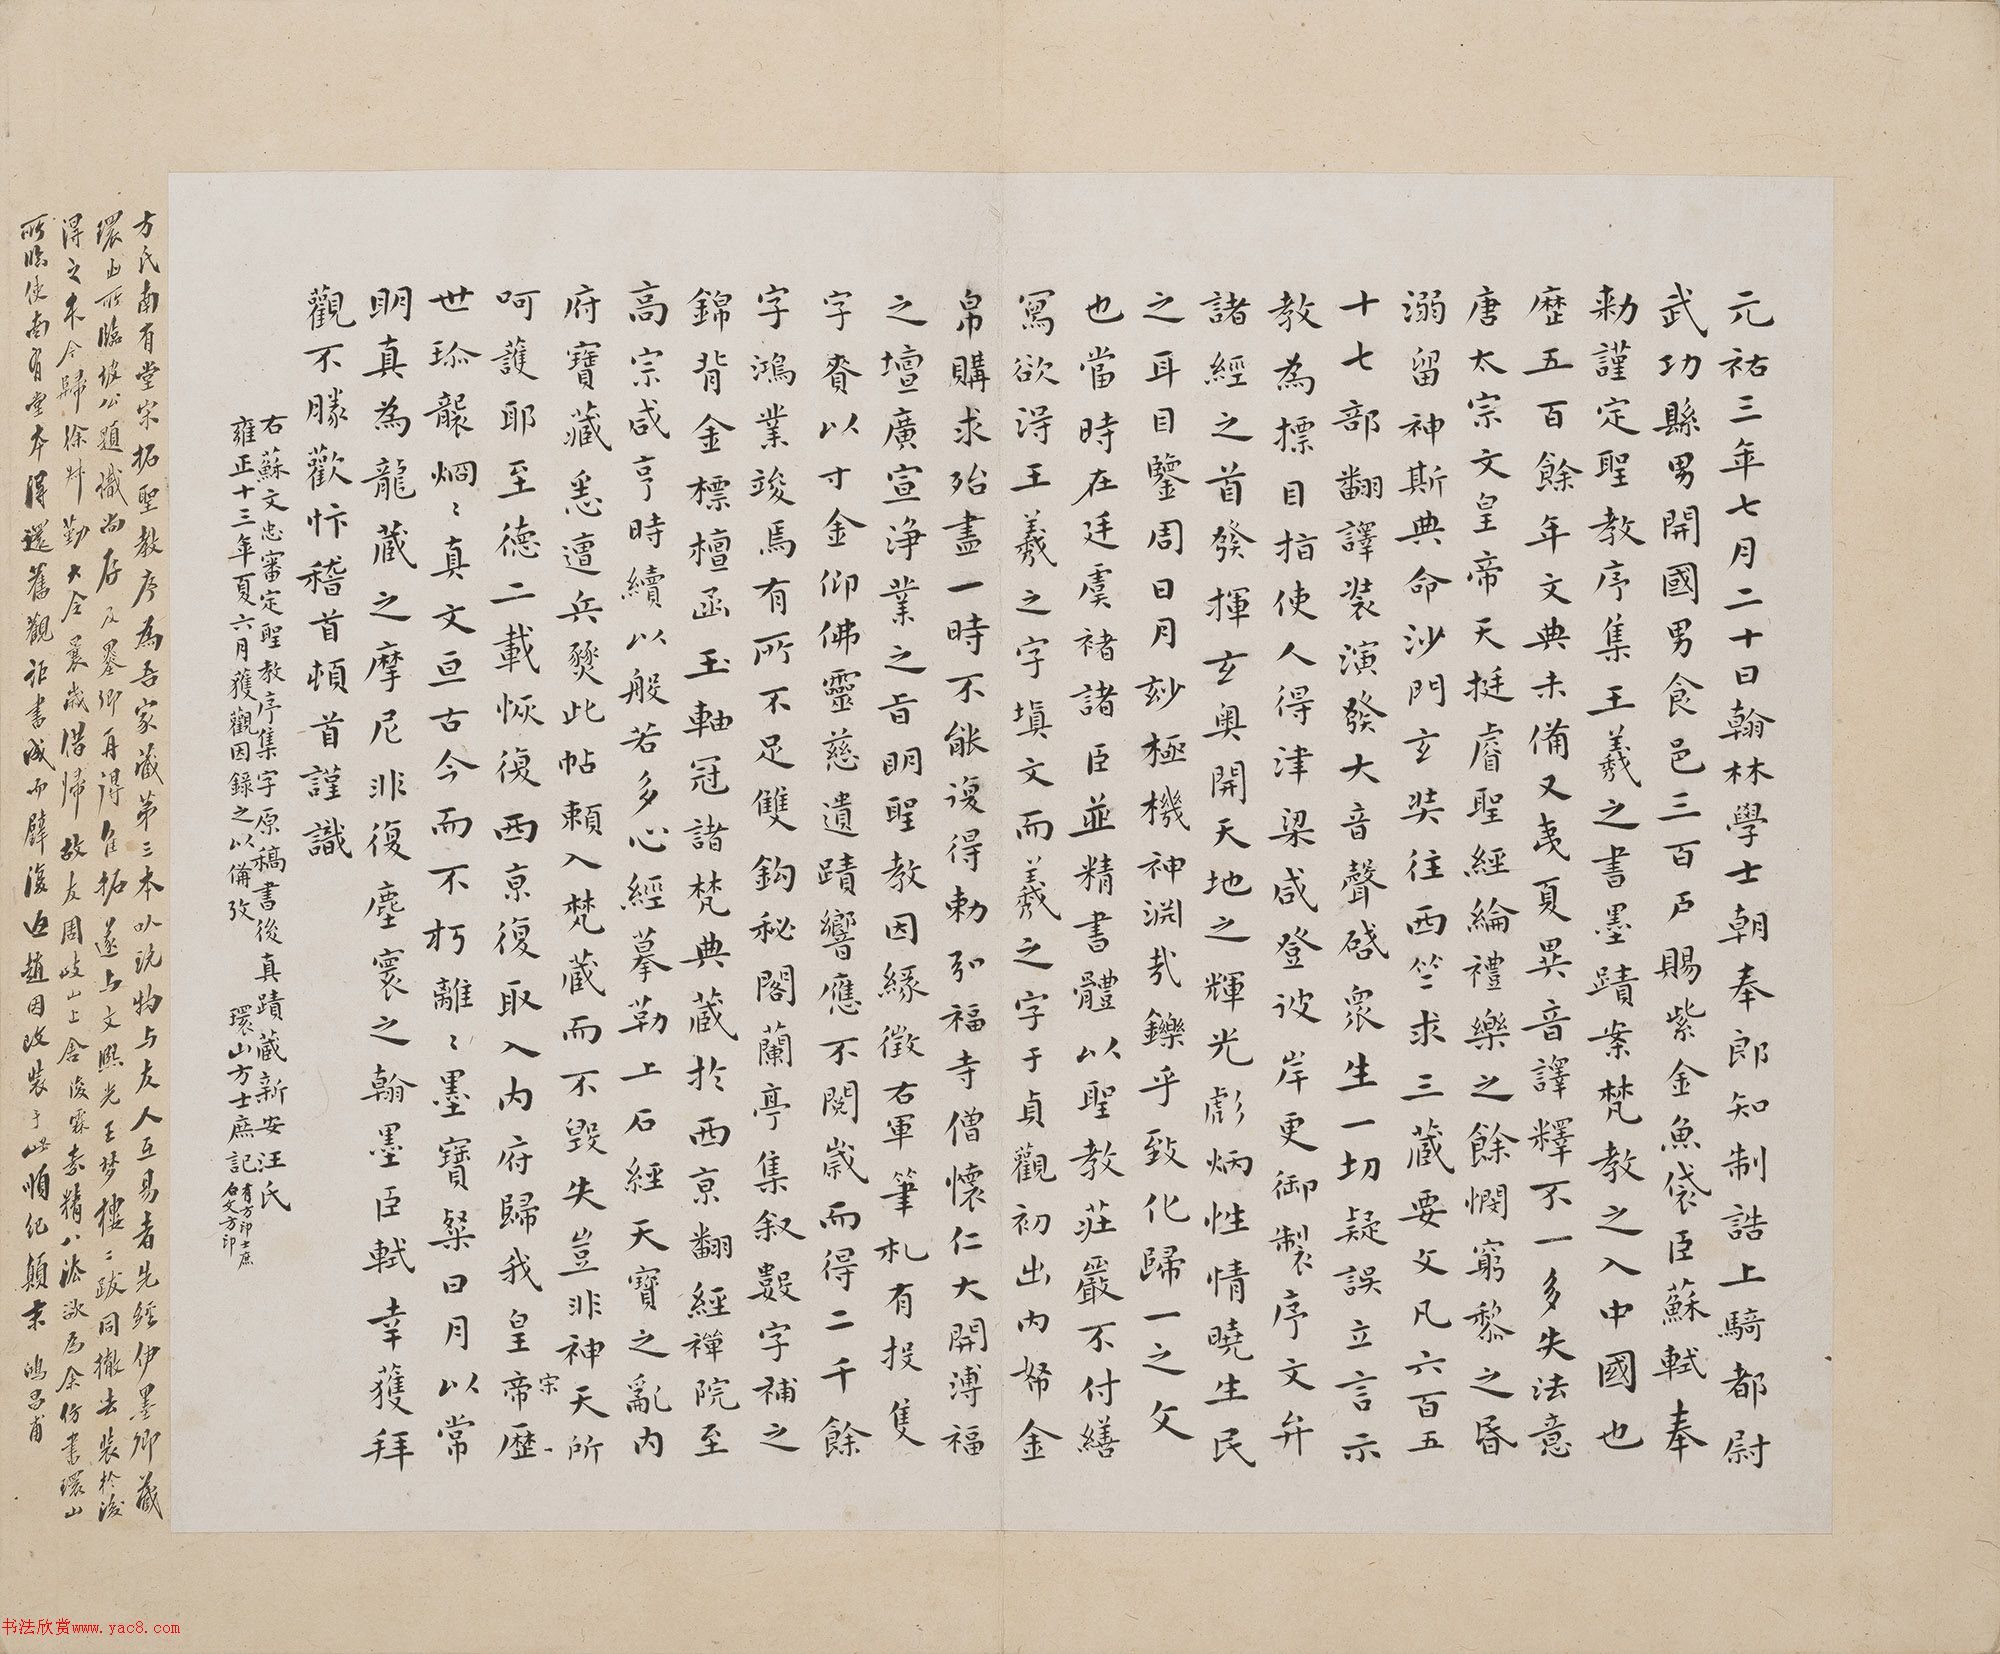 元祐三年七月二十日翰林學士朝奉郎知制誥上騎都尉
武功縣男開國男食邑三百戶賜紫金魚袋臣蘇軾奉
勅謹定聖教序集王羲之書墨蹟案梵教之入中國也
歷五百餘年文典未備又夷夏異音譯釋不一多失法意
唐太宗文皇帝天挺睿聖經綸禮樂之餘憫窮黎之昏
溺留神斯典命沙門玄奘往西竺求三藏要文凡六百五
十七部翻譯裝演發大音聲啓衆生一切疑誤立言示
教為標目指使人得津梁咸登彼岸更御製序文弁
諸經之首發揮玄奥開天地之輝光彪炳性情曉生民
之耳目鑒周日月妙極機神淵哉鑠乎致化歸一之文
也當時在廷虞褚諸臣並精書體以聖教莊嚴不付繕
寫欲淂王羲之字填文而羲之字于貞觀初出內帑金
帛購求殆盡一時不能復得勅弘福寺僧懷仁大開溥福
之壇廣宣淨業之旨明聖教因緣徵右軍筆札有投隻
字賚以寸金仰佛靈慈遺蹟響應不閱歲而得二千餘
字鴻業竣焉有所不足雙鈎秘閣蘭亭集叙數字補之
錦背金標檀函玉軸冠諸梵典藏於西京翻經禪院至
高宗咸亨時續以般若多心經摹勒上石經天寶之亂內
府寶藏悉遭兵燹此帖賴入梵藏而不毀失豈非神天所
呵護耶至德二載恢復西京復取入內府歸我皇帝歷
宋
世珎襲烱〻真文亘古今而不朽離〻墨寶粲日月以常
明真為龍藏之摩尼非復塵寰之翰墨臣軾幸獲拜
觀不勝歡忭稽首頓首謹識
右蘇文忠審定聖教序集字原稿書後真蹟藏新安汪氏
雍正十三年夏六月獲觀因錄之以備攷 環山方士庶記 有方印士庶
白文方印
方氏南有堂宋拓聖教序為吾家藏第三本以玩物与友人互易者先經伊墨卿藏
環山所臨坡公題識尚存及墨卿再得隹拓遂与文熙光王夢樓二跋同撤去裝於後
淂之本今歸徐州勤大令曩歲借歸故友周岐山上舍浚霖素精八法欲為余仿書環山
所臨使南有堂本淂還舊觀詎書成而璧復返趙因改裝于此順紀顛末 鴻昌甫
书法欣赏www.yac8.com